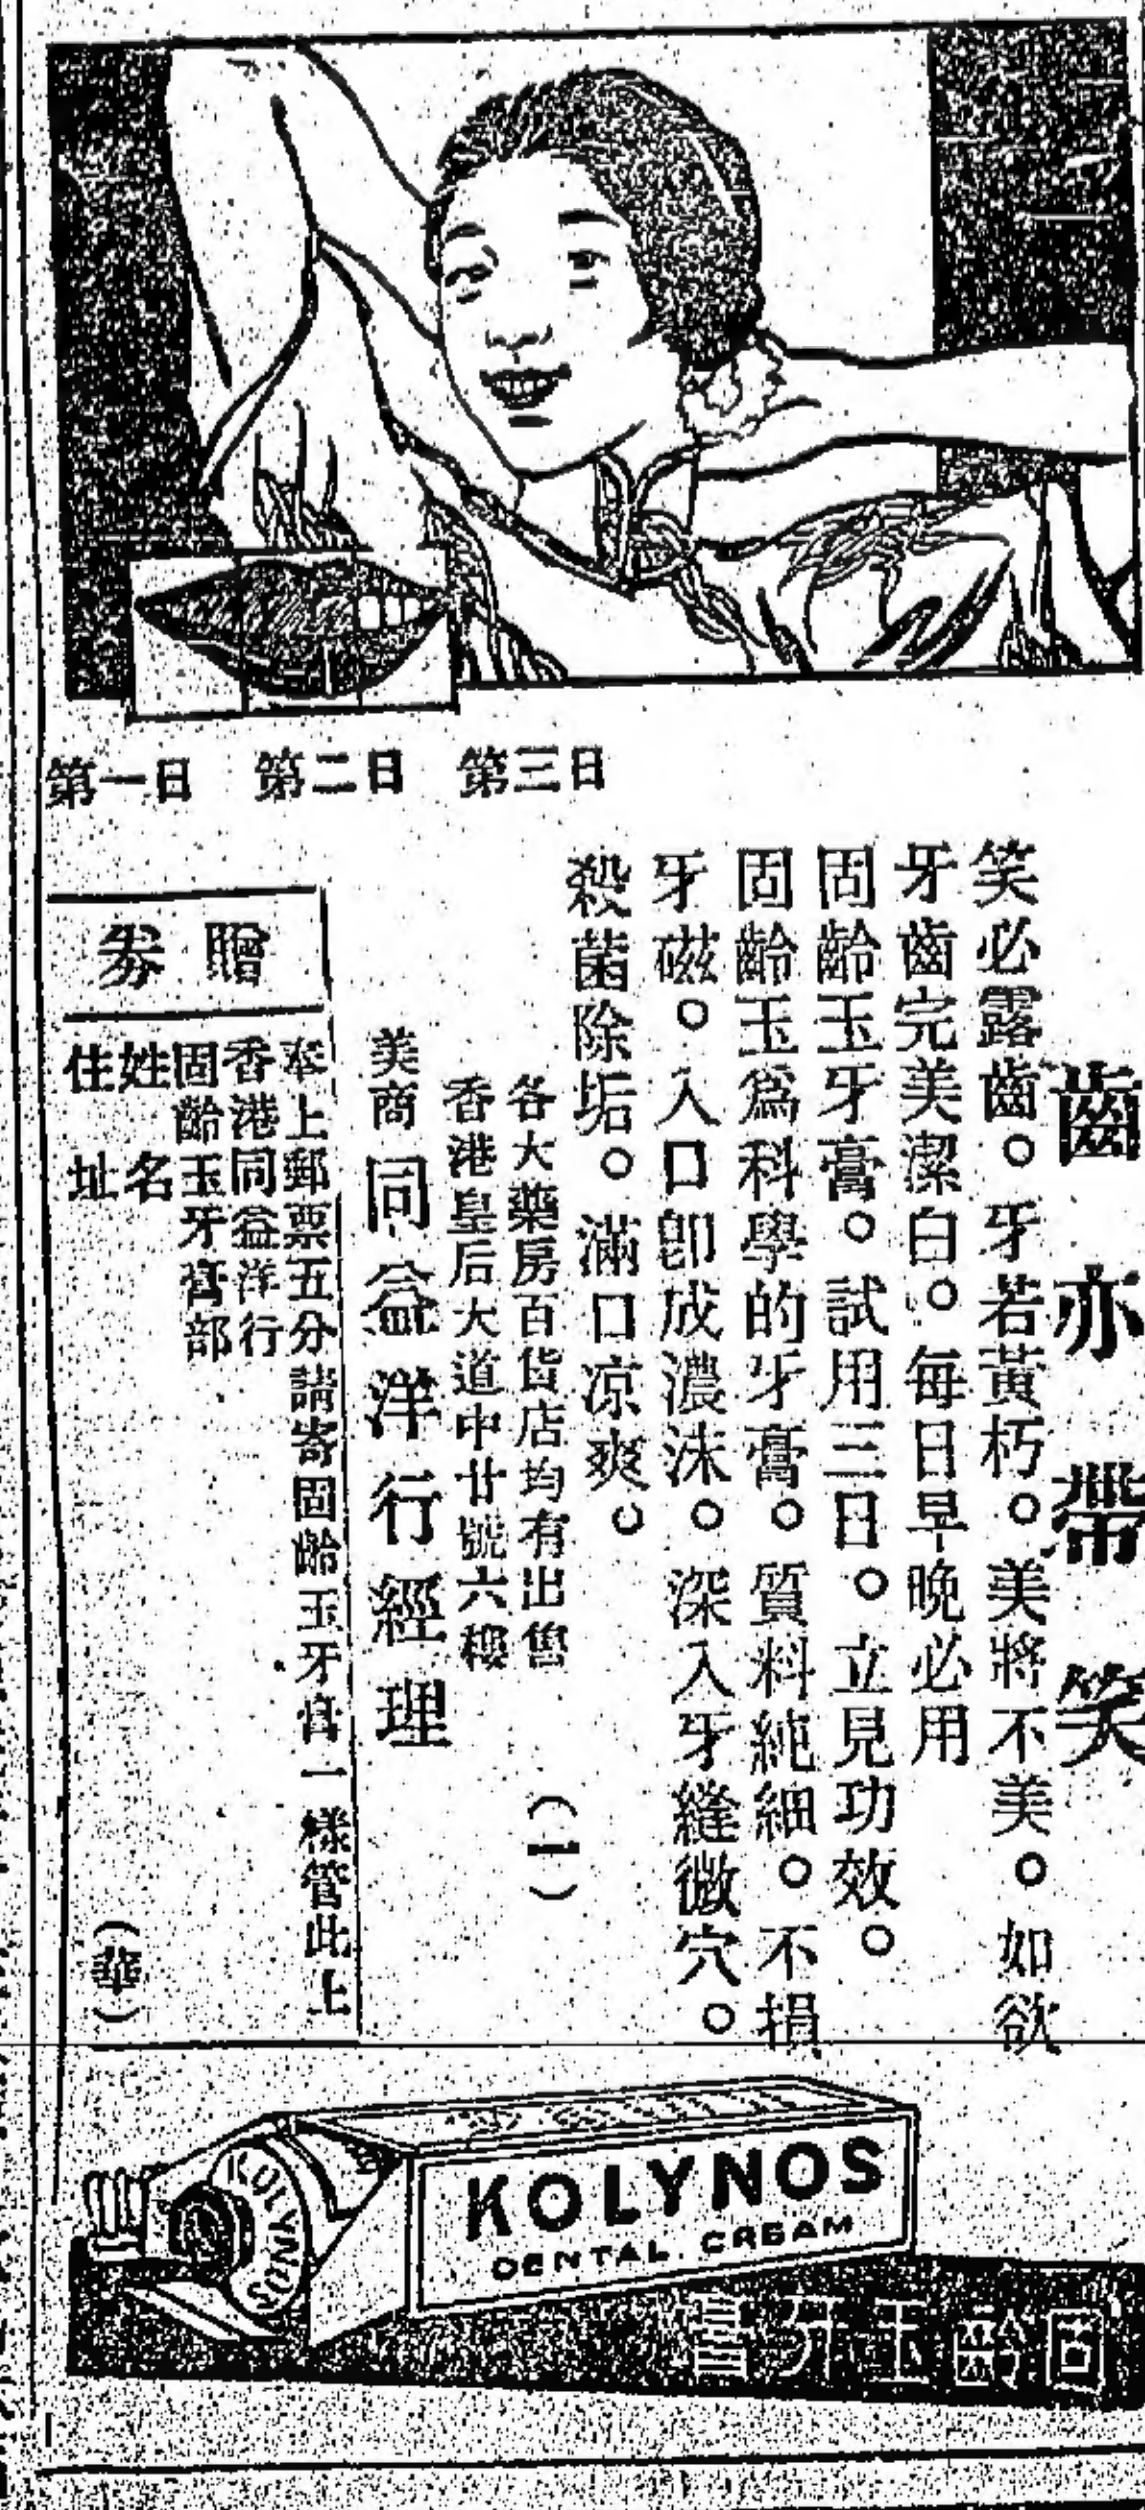 第一日 第二日 第三日
齒亦帶笑
笑必露齒。牙若黃朽。美將不美。如欲
牙齒完美潔白。每日早晚必用
固齡玉牙膏。試用三日。立見功效。
固齡玉爲科學的牙膏。質料純細。不損
牙磁。入口卽成濃沫。深入牙縫微穴。
殺菌除垢。滿口凉爽。
各大藥房百貨店均有出售
香港皇后大道中廿號六樓
(一)
美商同益洋行經理
贈券
奉上郵票五分請寄固齡玉牙膏一樣管此上
香港同益洋行
固齡玉牙膏部
姓名
住址
(華)
KOLYNOS
KOLYNOS
DENTAL CREAM
固齡玉牙膏